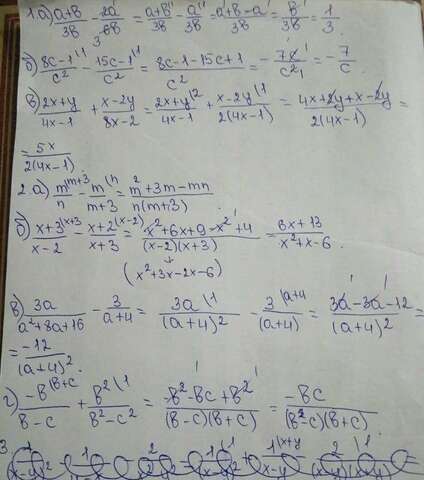 1. а) (а+в)/3в - 2а/6в = (а+в)/3в - а/3в = (а+в-а)/3в = в/3в = 1/3.
б) (8c-1)/c² - (15c-1)/c² = (8c-1-15c+1)/c² = -7c/c² = -7/c.
в) (2x+y)/(4x-1) + (x-2y)/(8x-2) = (2x+y)/(4x-1) + (x-2y)/(2(4x-1)) = (4x+2y+x-2y)/(2(4x-1)) =
= 5x/(2(4x-1))
2. а) m/n - m/(m+3) = (m²+3m-mn)/(n(m+3))
б) (x+3)/(x-2) - (x+2)/(x+3) = (x²+6x+9-x²+4)/((x-2)(x+3)) = (6x+13)/(x²+x-6).
(x²+3x-2x-6)
в) 3a/(a²+8a+16) - 3/(a+4) = 3a/(a+4)² - 3/(a+4) = (3a-3a-12)/(a+4)² =
= -12/(a+4)².
г) -в/(в-c) + в²/(в²-c²) = (-в²-вc+в²)/((в-c)(в+c)) = -вc/((в-c)(в+c)).
3.